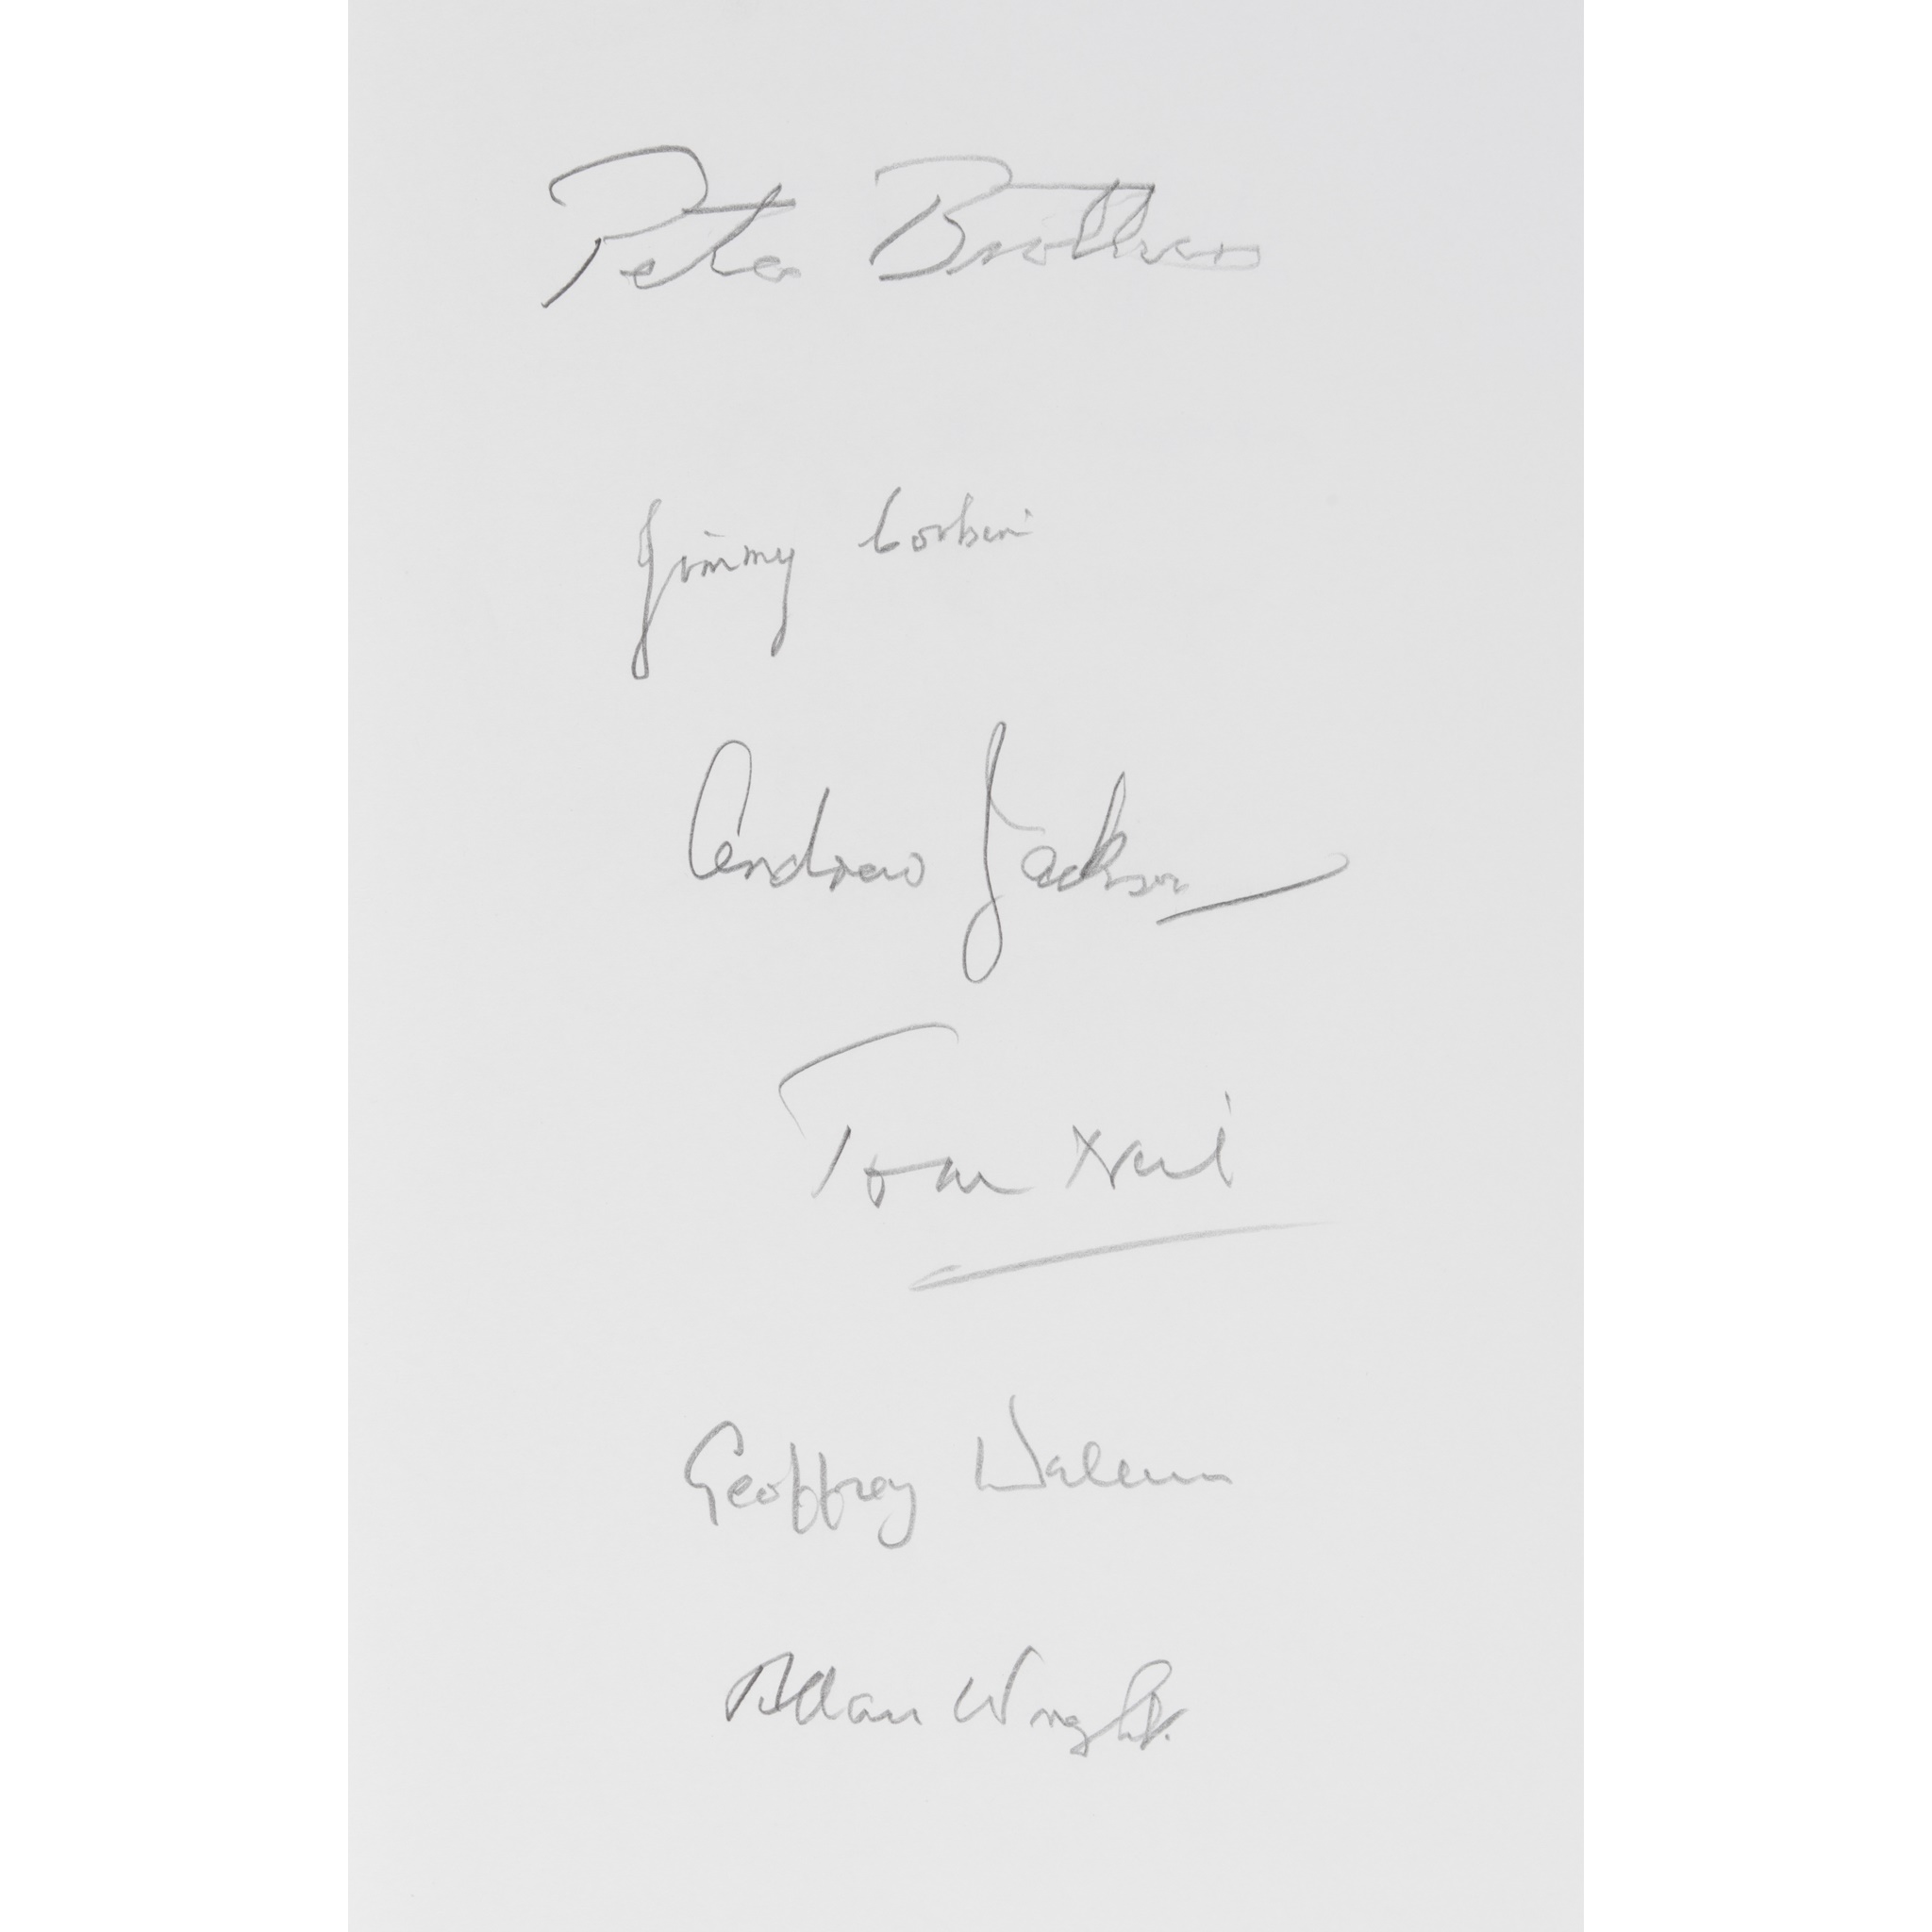 Peter Brothers
Jimmy Corbin
Andrew Jackson
Tom Neil
Geoffrey Wellum
Allan Wright.